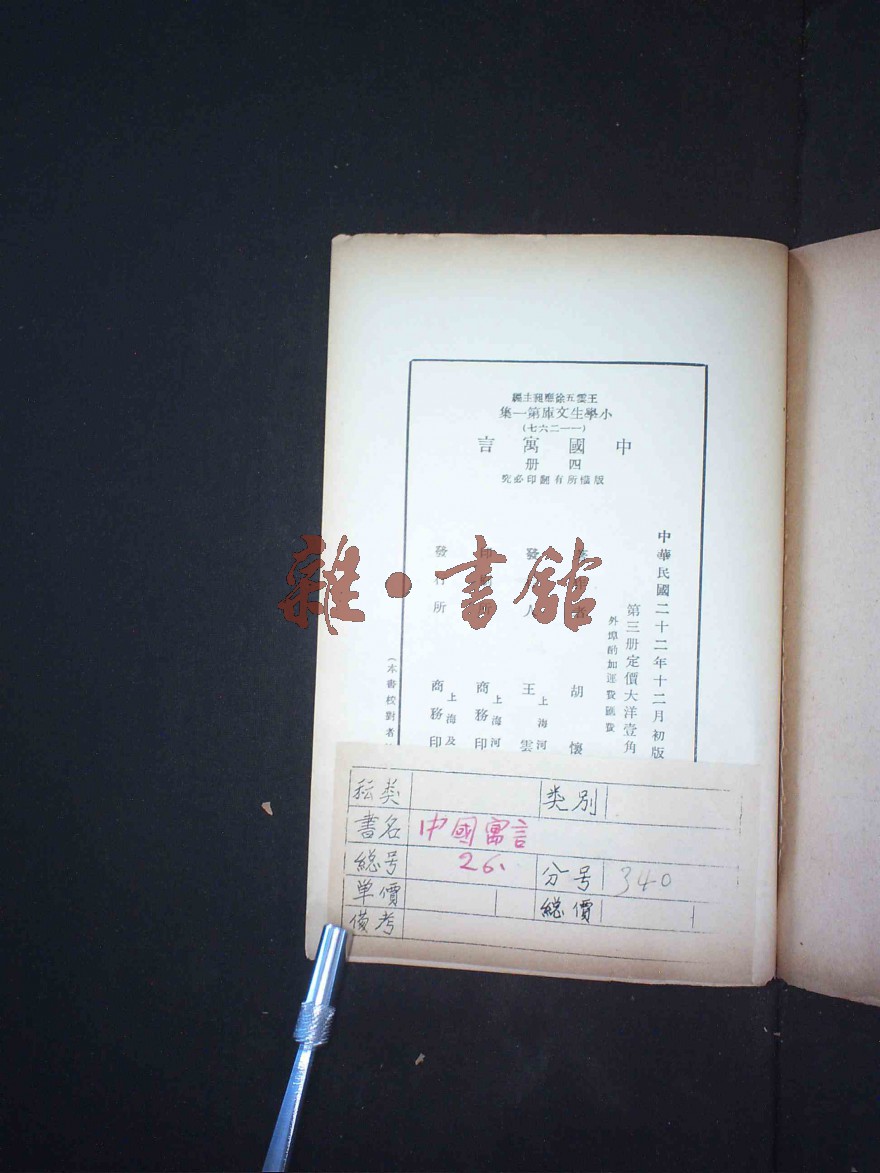 王雲五徐應昶主編
小學生文庫第一集
中國寓言
四册
版權所有翻印必究
中華民國二十二年十二月初版
第三册定價大洋壹角
外埠酌加運費匯費
者 胡懷
發 人 王雲
上海河
印 所 商務印
上海河
發行所 商務印
上海及
(本書校對者
雜·書館
秐类 类別
書名 中國寓言
総号 26. 分号 340
単價 総價
備考